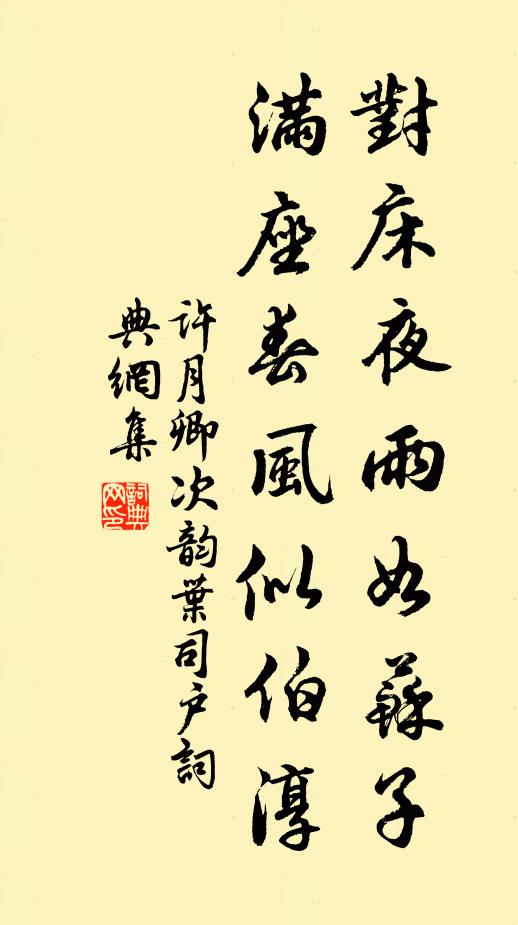 對床夜雨如蘇子
滿座春風似伯淳
許月卿次韵葉司户詞
典網集
詞典
网印